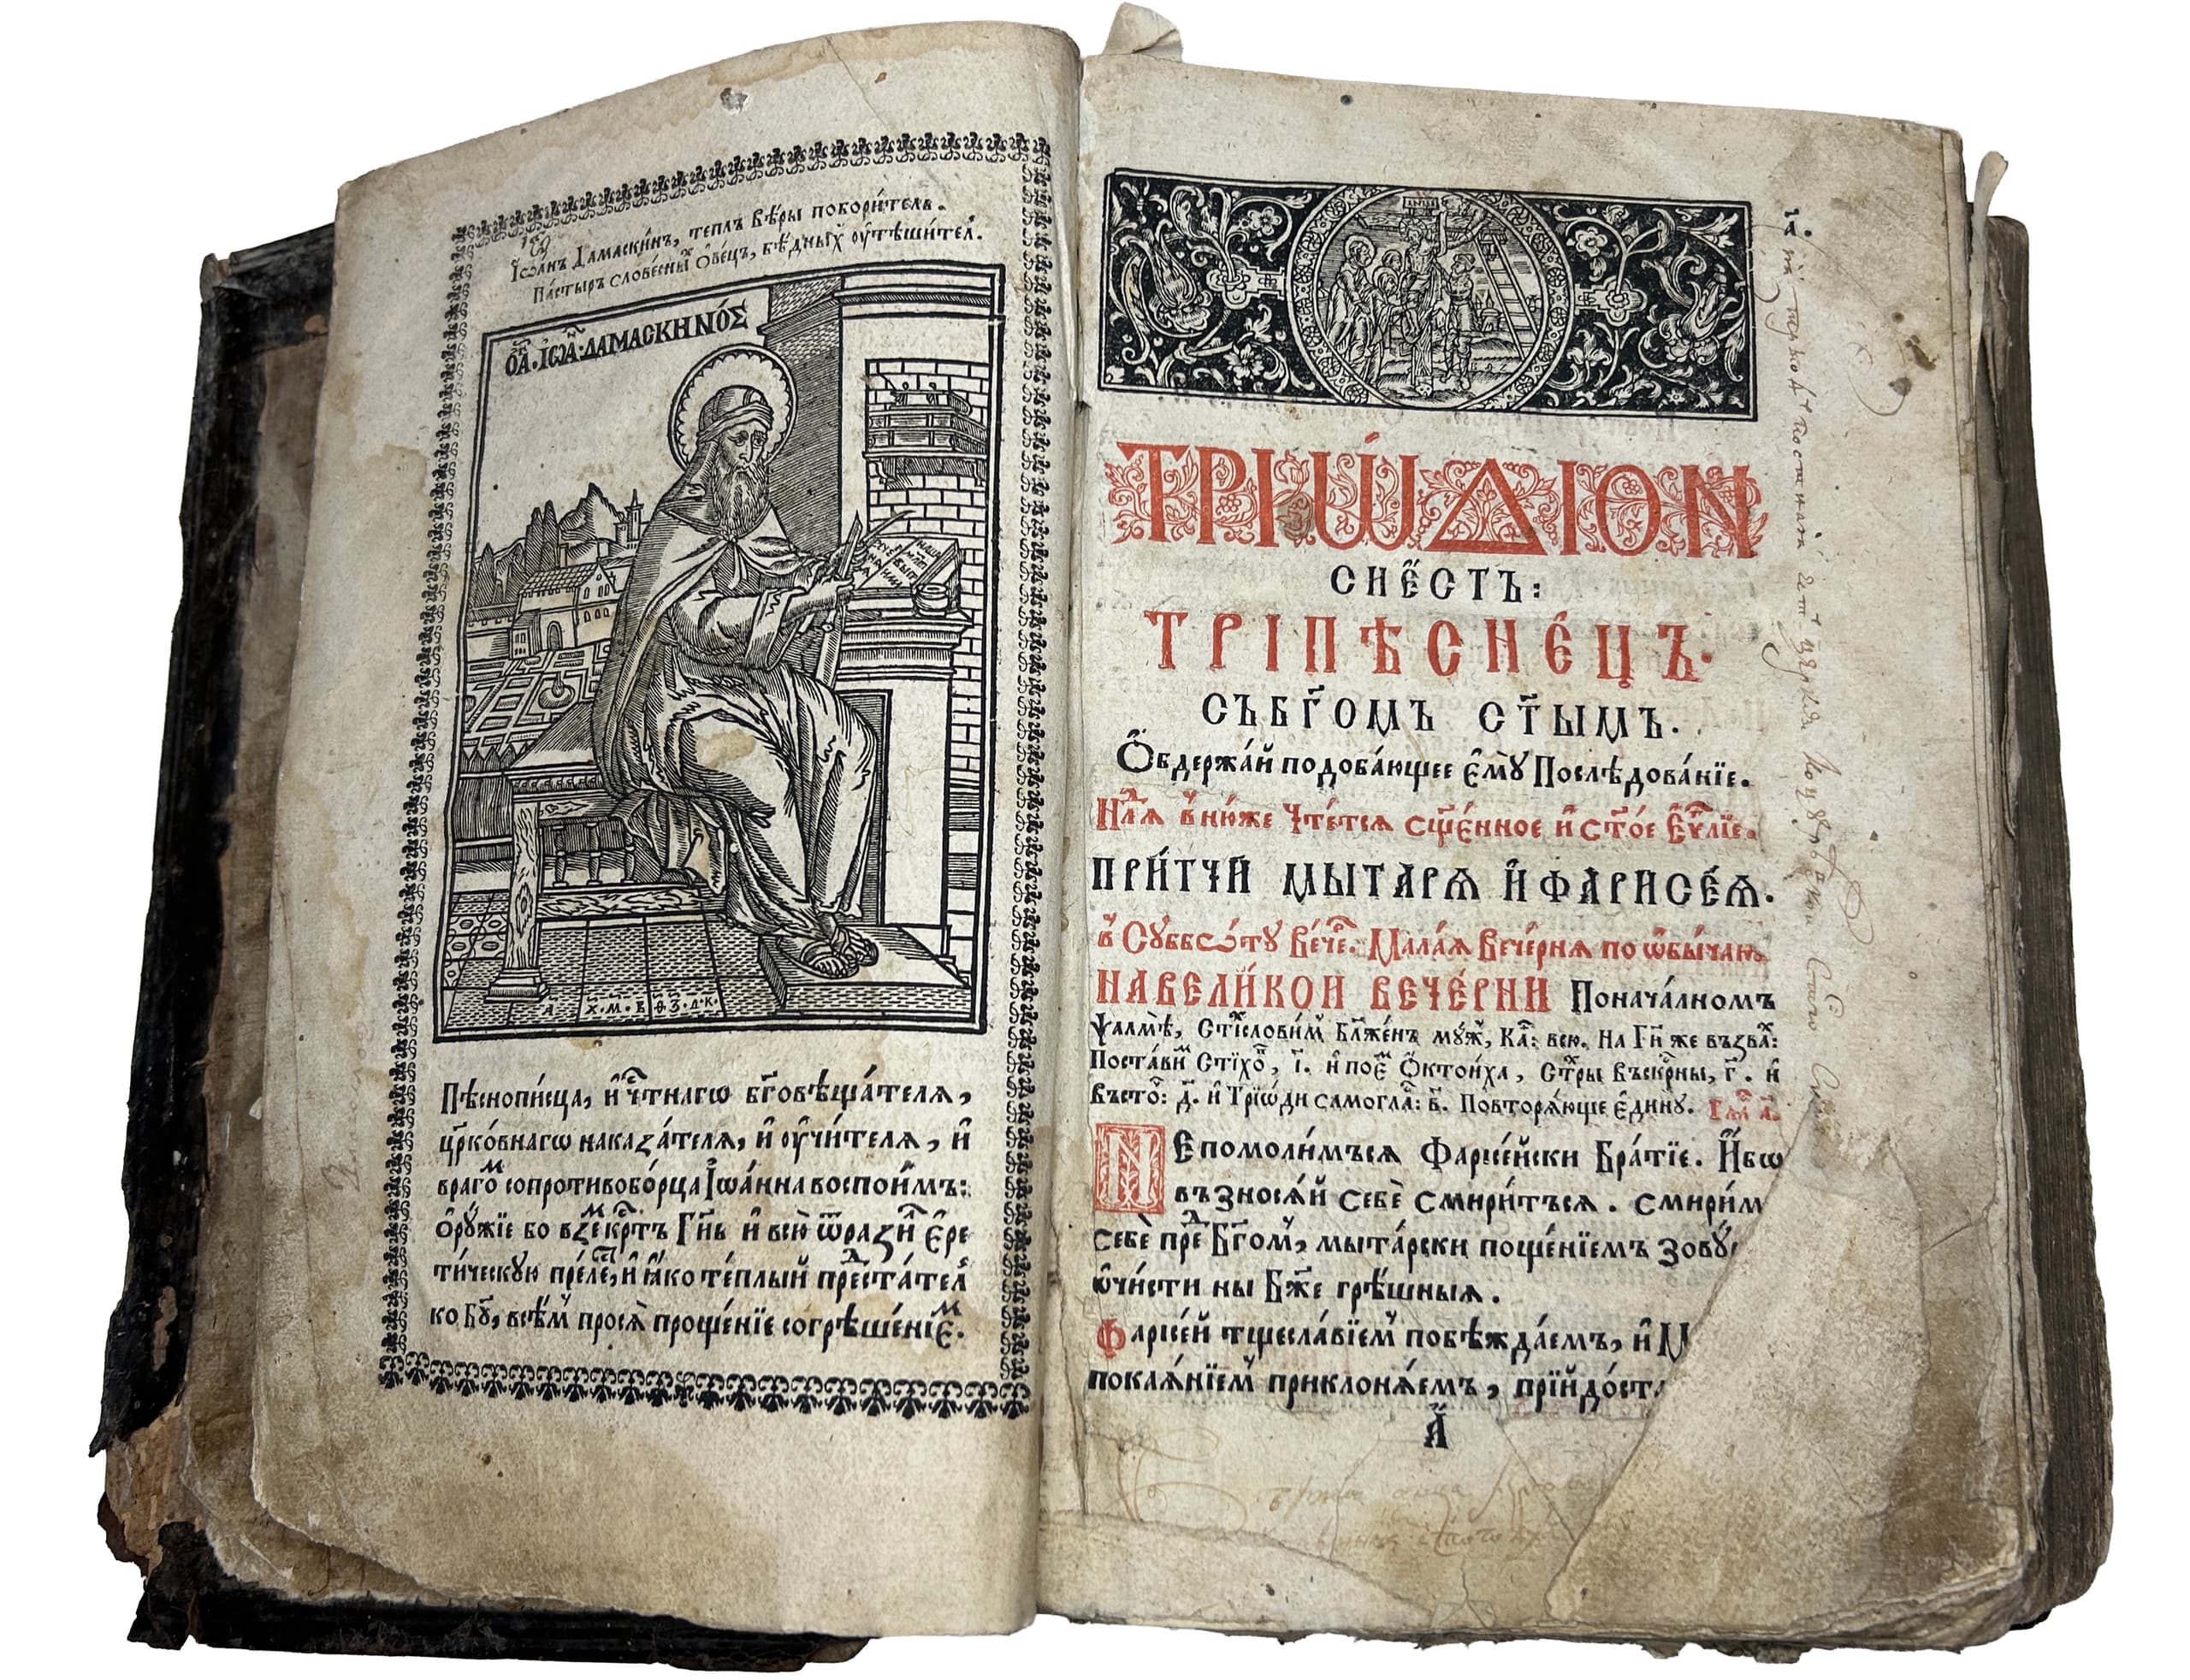 Іѡ́анъ Дамаски́нъ, теплъ Вѣ́ры побори́тель.
Па́стыръ слове́сны́ Ове́цъ, бѣ́дны́х оутѣши́тел.
ОА҃. ІѠА҃. ДАМАСКИНО́Σ
а҃. х. м. в. ф҃з. л. к.
Пѣснопи́сца, и҆ ч҃тнагѡ бг҃овѣща́теля,
цр҃ко́внагѡ наказа́теля, и҆ оучи́теля, и҆
враго́м сопротивобо́рца Іѡа́нна воспои́мъ:
Ѻру́жїе бо взе́м крⷭ҇тъ Гн҃ь и҆ всю̀ ѿрази́ Е҆ре
ти́ческую пре́лесть, и҆ ꙗ҆ко те́плый предста́тел
ко Бг҃у, всѣ́м прося̀ проще́нїе согрѣше́нїем.
ТРІѠ́ДІОН
СИЕ́СТЪ:
ТРІПѢСНЕ́ЦЪ.
СЪБГ҃ОМЪ СТ҃ЫМЪ.
Ѻ҆бдержа́й подоба́ющее е҆му̀ Послѣ́дованїе.
Нⷣля в ню́же Чте́тся сщ҃е́нное и҆ ст҃о́е Еѵⷢ҇лїе.
ПРИ́ТЧИ МЫТАРѦ И҆ ФАРИСЕ́Ѧ.
в Суббѡ́ту Ве́че. Мала́я Вече́рня по ѡ҆бы́чаю
НАВЕЛИ́КОИ ВЕЧЕ́РНИ Понача́лномъ
Ѱалмѣ̀, Стїсло́вим Бл҃же́нъ му́ж, Каѳ: всю. На Гд҃и же възва́х:
Поста́вим Стїхо́в, і҃. и҆ пое́м Ѻ҆ктои́ха, Стⷯры Въскрⷭ҇ны, г҃. и҆
Въсто́: д҃. и҆ Трїѡ́ди самогла́: в҃. Повторя́юще е҆ди́ну. Гла́ а҃.
Не помоли́мъся Фарїсе́йски Бра́тїе. И҆́бѡ
възнося́й себѐ смири́тъся. смири́м
себѐ пред Бг҃ом, мыта́рски поще́нїемъ зову́
ѡ҆чи́сти ны Бж҃е грѣ́шныя.
Фарїсе́й тщесла́вїем побѣжда́емъ, и҆ М
покая́нїем приклоня́емъ, прїидо́ста
а҃